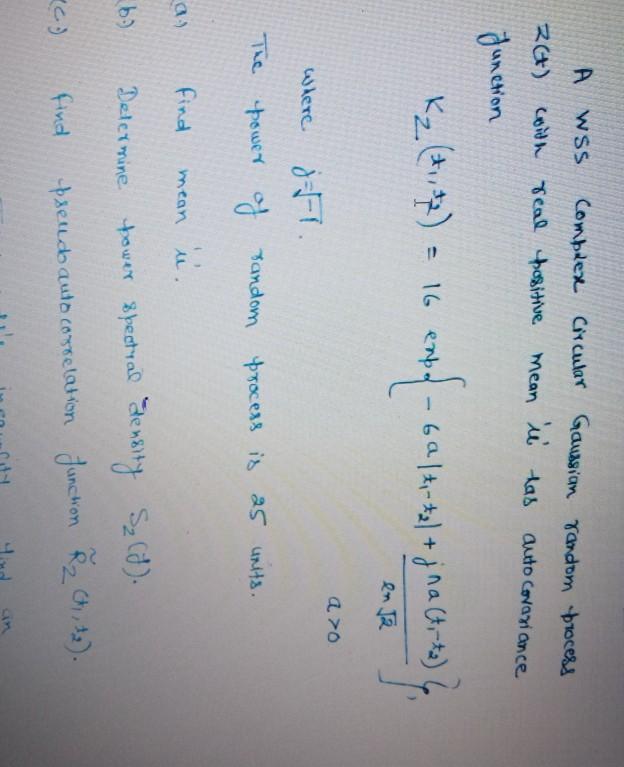 A WSS Complex Circular Gaussian random process
Z(t) with real positive mean 'μ' has autocovariance
function
K_Z (t₁, t₂) = 16 exp{ - 6a|t₁-t₂| + jπa(t₁-t₂)/ln√2 },
a>0
where j=√-1.
The power of random process is 25 units.
(a.) find mean 'μ'.
(b.) Determine power spectral density S_Z(f).
(c.) find pseudoautocorrelation function R̃_Z (t₁, t₂).